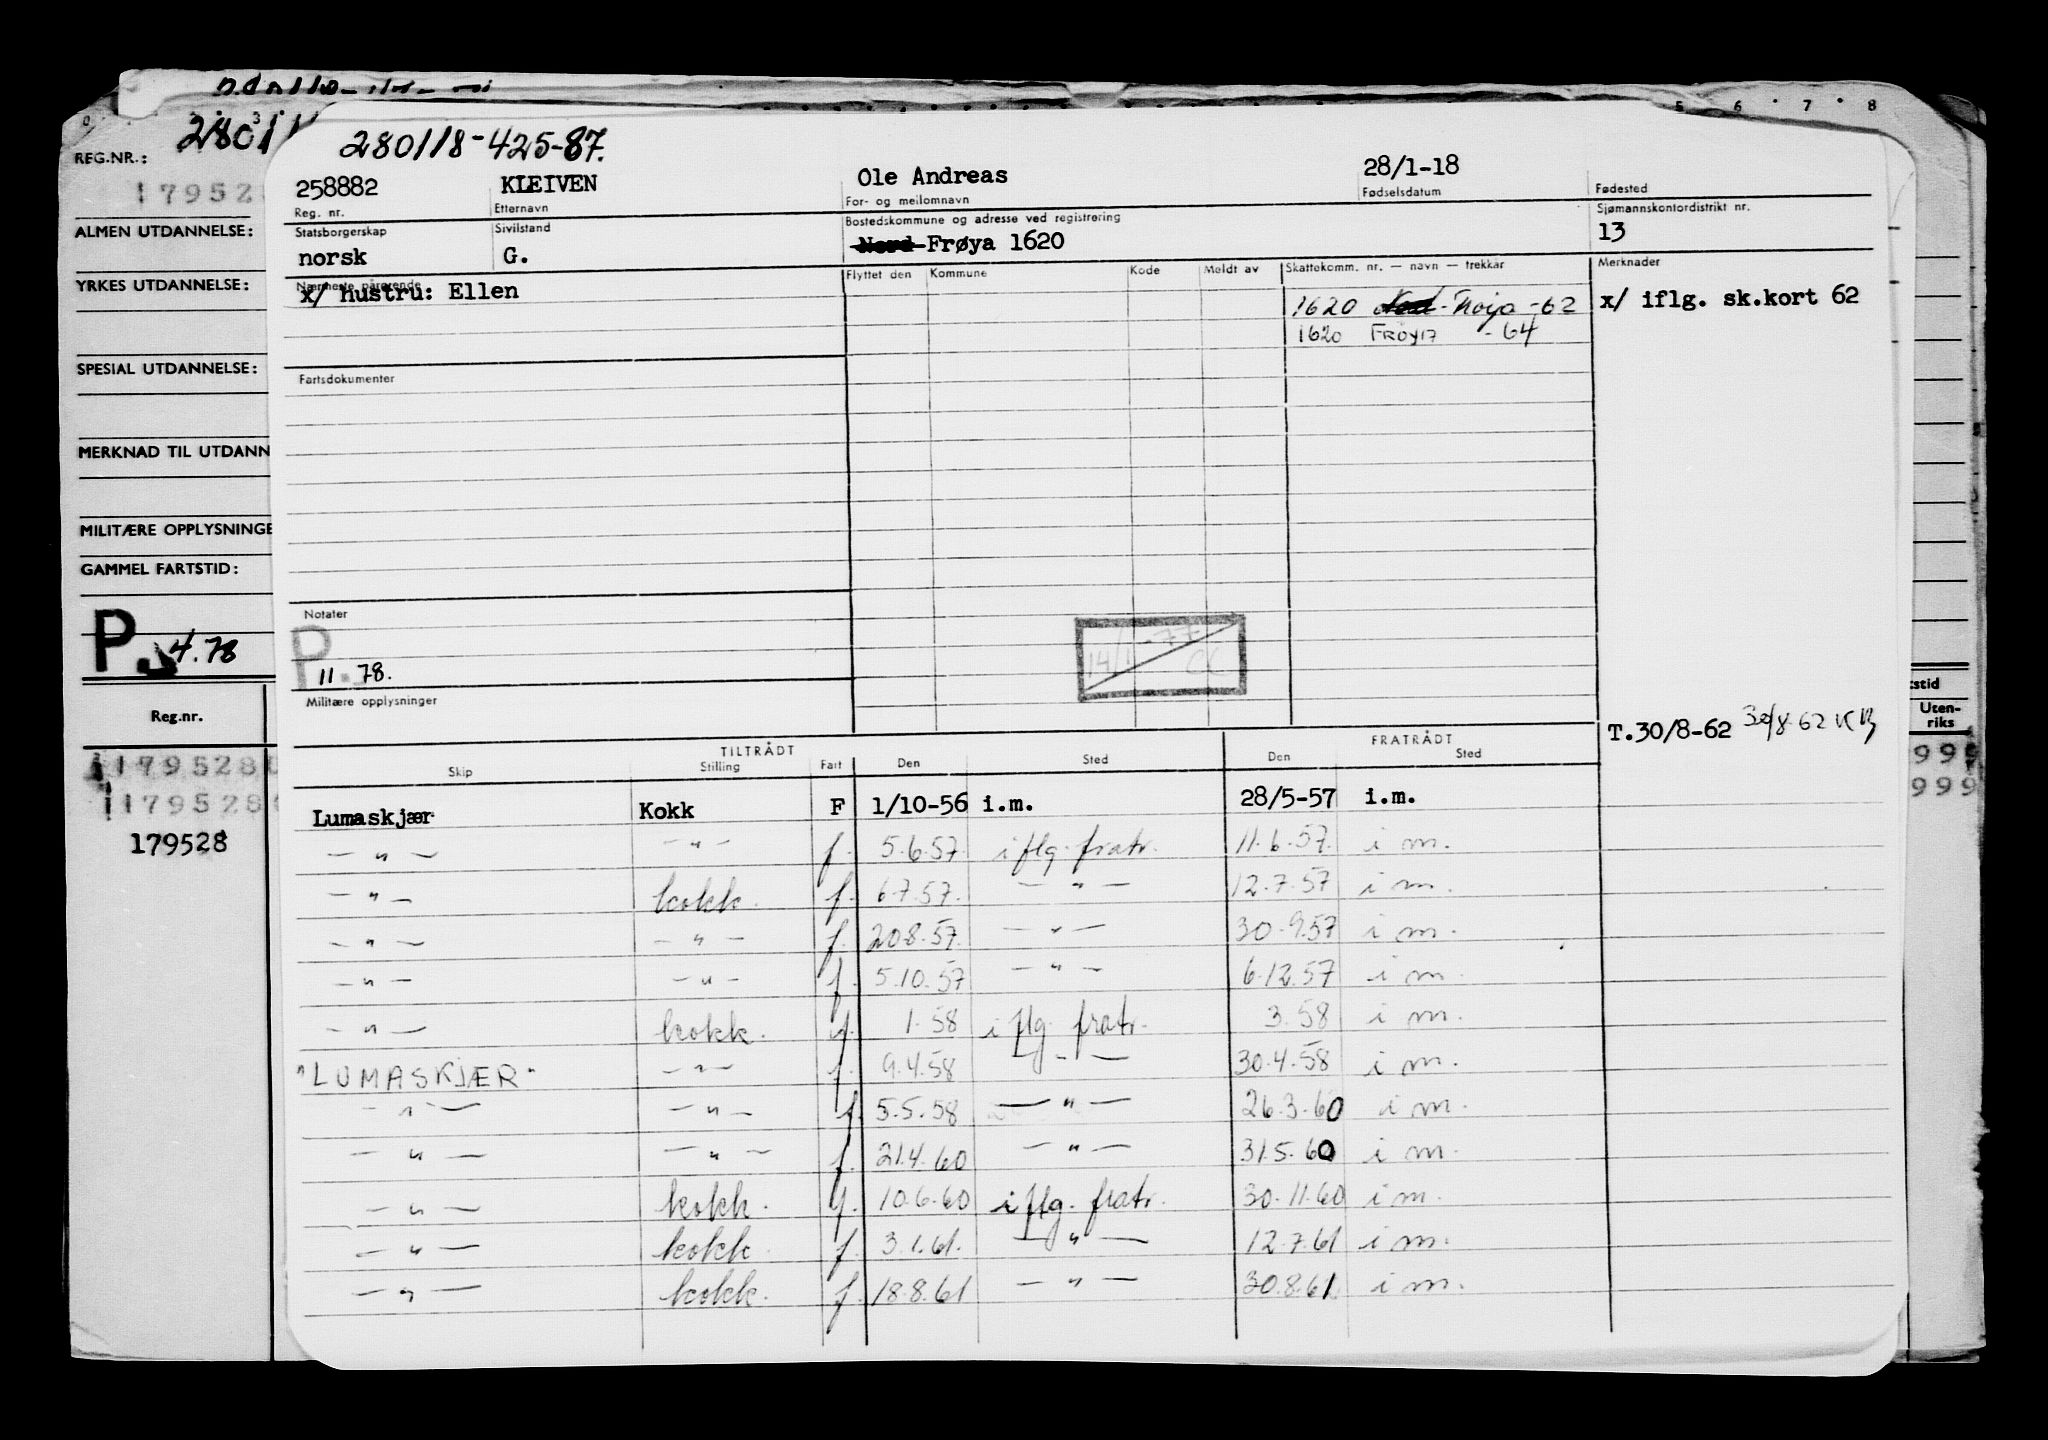 5 6 7 8
REG.NR.:
ALMEN UTDANNELSE:
YRKES UTDANNELSE:
SPESIAL UTDANNELSE:
MERKNAD TIL UTDANN
MILITÆRE OPPLYSNINGE
GAMMEL FARTSTID:
P. 4.78
Reg.nr.
1795280
1795280
179528
stid
Uten-
riks
999
999
280118-425-87.
258882 KLEIVEN Ole Andreas 28/1-18
Reg. nr. Etternavn For- og mellomnavn Fødselsdatum Fødested
Statsborgerskap Sivilstand Bostedskommune og adresse ved registrering Sjømannskontordistrikt nr.
norsk G. Nord-Frøya 1620 13
Nærmeste pårørende Flyttet den Kommune Kode Meldt av Skattekomm. nr. — navn — trekkår Merknader
x/ hustru: Ellen 1620 Frøya -62 x/ iflg. sk.kort 62
1620 FRØYA -64
Fartsdokumenter
Notater
P 11.78.
14/1-77
Militære opplysninger
T.30/8-62 30/8-62
TILTRÅDT FRATRÅDT
Skip Stilling Fart Den Sted Den Sted
Lumaskjær Kokk F 1/10-56 i.m. 28/5-57 i.m.
— " — — " — f. 5.6.57. iflg. fratr. 11.6.57. i m.
— " — kokk. f. 6.7.57. — " — 12.7.57 i m.
— " — — " — f. 20.8.57. — " — 30.9.57 i m.
— " — — " — f. 5.10.57 — " — 6.12.57 i m.
— " — kokk. f. 1.58 iflg. fratr. 3.58 i m.
"LUMASKJÆR" — " — f. 9.4.58 — " — 30.4.58 i m.
— " — — " — f. 5.5.58 — " — 26.3.60 i m.
— " — — " — f. 21.4.60 — " — 31.5.60 i m.
— " — kokk. f. 10.6.60 iflg. fratr. 30.11.60 i m.
— " — kokk. f. 3.1.61. — " — 12.7.61 i m.
— " — kokk. f. 18.8.61 — " — 30.8.61 i m.